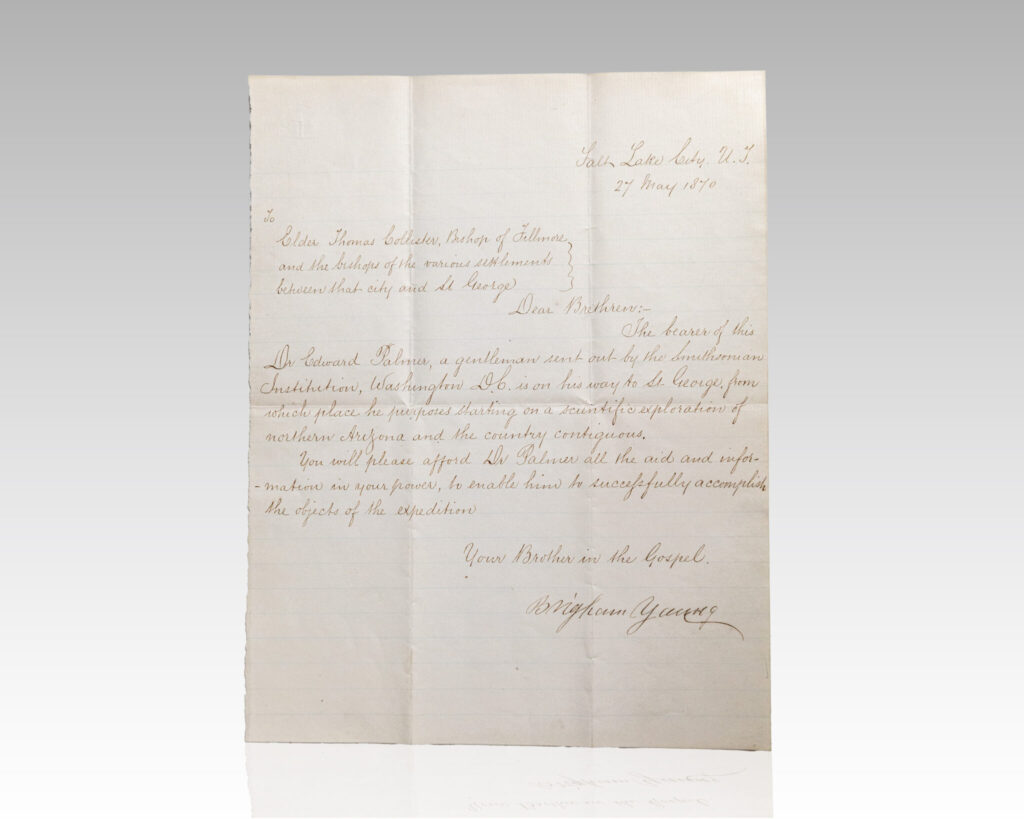 Salt Lake City, U. T.
27 May 1870
To
Elder Thomas Collister, Bishop of Fillmore
and the bishops of the various settlements
between that city and St George
Dear Brethren:-
The bearer of this
Dr Edward Palmer, a gentleman sent out by the Smithsonian
Institution, Washington D.C. is on his way to St George, from
which place he purposes starting on a scientific exploration of
northern Arizona and the country contiguous.
You will please afford Dr Palmer all the aid and infor-
-mation in your power, to enable him to successfully accomplish
the objects of the expedition
Your Brother in the Gospel.
Brigham Young